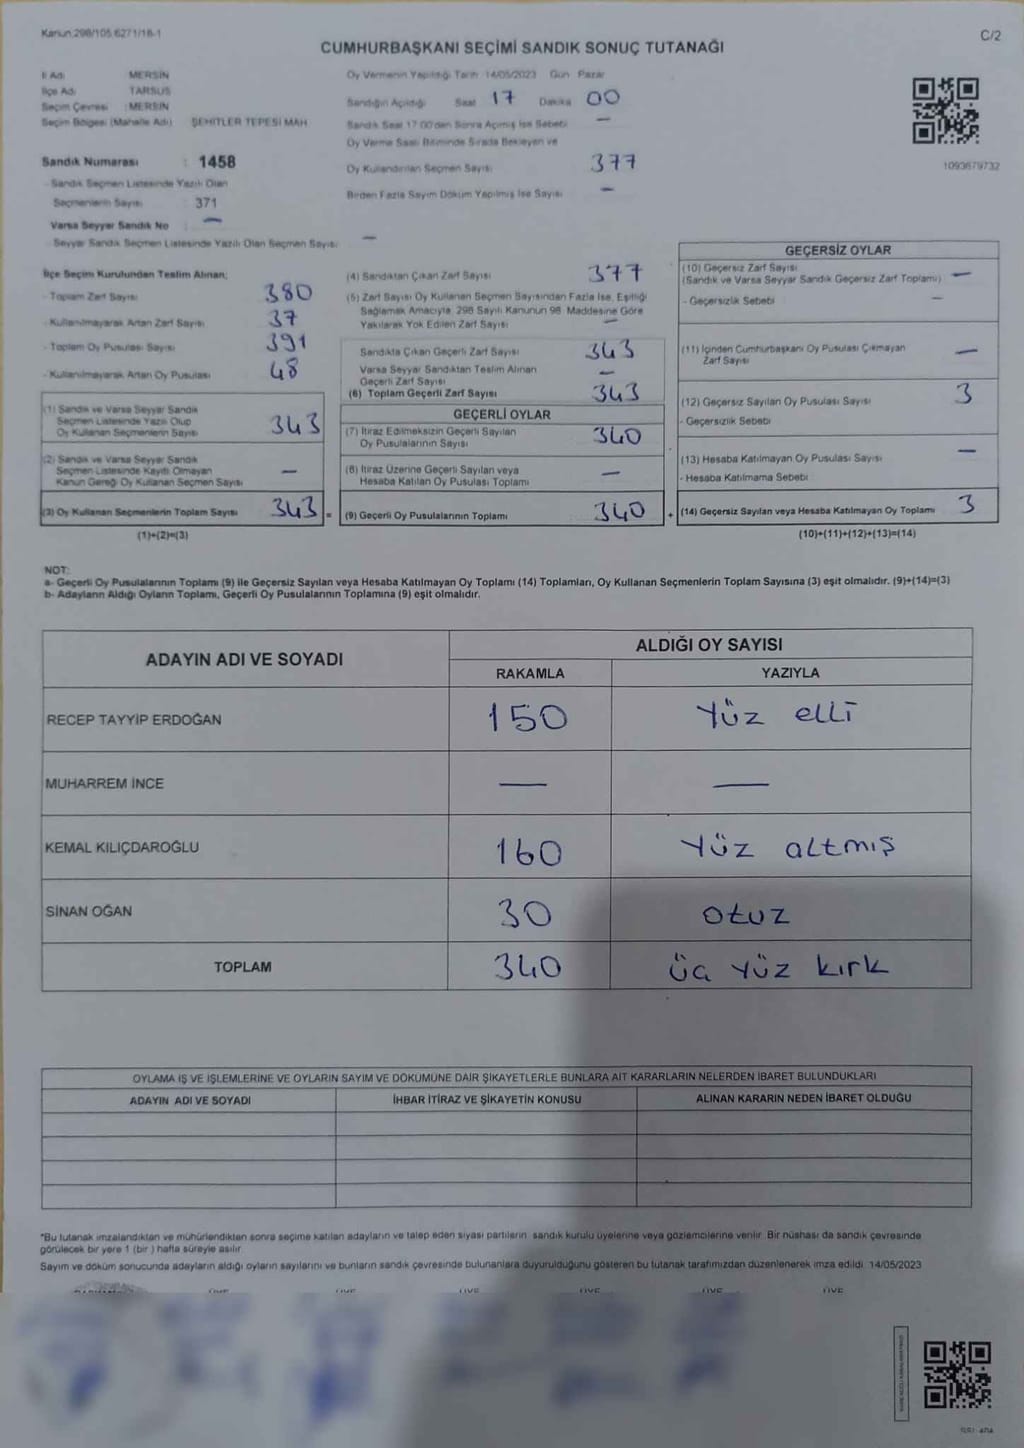 Kanun:298/105.6271/18-1
C/2
CUMHURBAŞKANI SEÇİMİ SANDIK SONUÇ TUTANAĞI
İl Adı MERSİN
İlçe Adı TARSUS
Seçim Çevresi : MERSİN
Seçim Bölgesi (Mahalle Adı) ŞEHİTLER TEPESİ MAH
Sandık Numarası : 1458
- Sandık Seçmen Listesinde Yazılı Olan
Seçmenlerin Sayısı 371
Varsa Seyyar Sandık No : —
- Seyyar Sandık Seçmen Listesinde Yazılı Olan Seçmen Sayısı —
Oy Vermenin Yapıldığı Tarih 14/05/2023 Gün Pazar
Sandığın Açıldığı Saat 17 Dakika 00
Sandık Saat 17:00'den Sonra Açılmış İse Sebebi —
Oy Verme Saati Bitiminde Sırada Bekleyen ve
Oy Kullandırılan Seçmen Sayısı 377
Birden Fazla Sayım Döküm Yapılmış İse Sayısı —
1093679732
İlçe Seçim Kurulundan Teslim Alınan;
- Toplam Zarf Sayısı 380
- Kullanılmayarak Artan Zarf Sayısı 37
- Toplam Oy Pusulası Sayısı 391
- Kullanılmayarak Artan Oy Pusulası 48
(1) Sandık ve Varsa Seyyar Sandık
Seçmen Listesinde Yazılı Olup
Oy Kullanan Seçmenlerin Sayısı 343
(2) Sandık ve Varsa Seyyar Sandık
Seçmen Listesinde Kayıtlı Olmayan
Kanun Gereği Oy Kullanan Seçmen Sayısı —
(3) Oy Kullanan Seçmenlerin Toplam Sayısı 343 =
(1)+(2)=(3)
(4) Sandıktan Çıkan Zarf Sayısı 377
(5) Zarf Sayısı Oy Kullanan Seçmen Sayısından Fazla İse, Eşitliği
Sağlamak Amacıyla, 298 Sayılı Kanunun 98. Maddesine Göre
Yakılarak Yok Edilen Zarf Sayısı —
Sandıkta Çıkan Geçerli Zarf Sayısı 343
Varsa Seyyar Sandıktan Teslim Alınan
Geçerli Zarf Sayısı —
(6) Toplam Geçerli Zarf Sayısı 343
GEÇERLİ OYLAR
(7) İtiraz Edilmeksizin Geçerli Sayılan
Oy Pusulalarının Sayısı 340
(8) İtiraz Üzerine Geçerli Sayılan veya
Hesaba Katılan Oy Pusulası Toplamı —
(9) Geçerli Oy Pusulalarının Toplamı 340 +
GEÇERSİZ OYLAR
(10) Geçersiz Zarf Sayısı
(Sandık ve Varsa Seyyar Sandık Geçersiz Zarf Toplamı) —
- Geçersizlik Sebebi —
(11) İçinden Cumhurbaşkanı Oy Pusulası Çıkmayan
Zarf Sayısı —
(12) Geçersiz Sayılan Oy Pusulası Sayısı 3
- Geçersizlik Sebebi
(13) Hesaba Katılmayan Oy Pusulası Sayısı —
- Hesaba Katılmama Sebebi
(14) Geçersiz Sayılan veya Hesaba Katılmayan Oy Toplamı 3
(10)+(11)+(12)+(13)=(14)
NOT:
a- Geçerli Oy Pusulalarının Toplamı (9) ile Geçersiz Sayılan veya Hesaba Katılmayan Oy Toplamı (14) Toplamları, Oy Kullanan Seçmenlerin Toplam Sayısına (3) eşit olmalıdır. (9)+(14)=(3)
b- Adayların Aldığı Oyların Toplamı, Geçerli Oy Pusulalarının Toplamına (9) eşit olmalıdır.
ADAYIN ADI VE SOYADI
ALDIĞI OY SAYISI
RAKAMLA YAZIYLA
RECEP TAYYİP ERDOĞAN 150 Yüz elli
MUHARREM İNCE — —
KEMAL KILIÇDAROĞLU 160 Yüz altmış
SİNAN OĞAN 30 otuz
TOPLAM 340 üç yüz kırk
OYLAMA İŞ VE İŞLEMLERİNE VE OYLARIN SAYIM VE DÖKÜMÜNE DAİR ŞİKAYETLERLE BUNLARA AİT KARARLARIN NELERDEN İBARET BULUNDUKLARI
ADAYIN ADI VE SOYADI İHBAR İTİRAZ VE ŞİKAYETİN KONUSU ALINAN KARARIN NEDEN İBARET OLDUĞU
*Bu tutanak imzalandıktan ve mühürlendikten sonra seçime katılan adayların ve talep eden siyasi partilerin sandık kurulu üyelerine veya gözlemcilerine verilir. Bir nüshası da sandık çevresinde
görülecek bir yere 1 (bir ) hafta süreyle asılır.
Sayım ve döküm sonucunda adayların aldığı oyların sayılarını ve bunların sandık çevresinde bulunanlara duyurulduğunu gösteren bu tutanak tarafımızdan düzenlenerek imza edildi. 14/05/2023